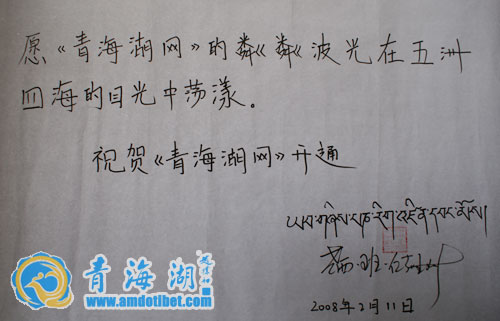 愿《青海湖网》的粼《粼《波光在五洲
四海的目光中荡漾。
祝贺《青海湖网》开通
2008年2月11日
青海湖
www.amdotibet.com